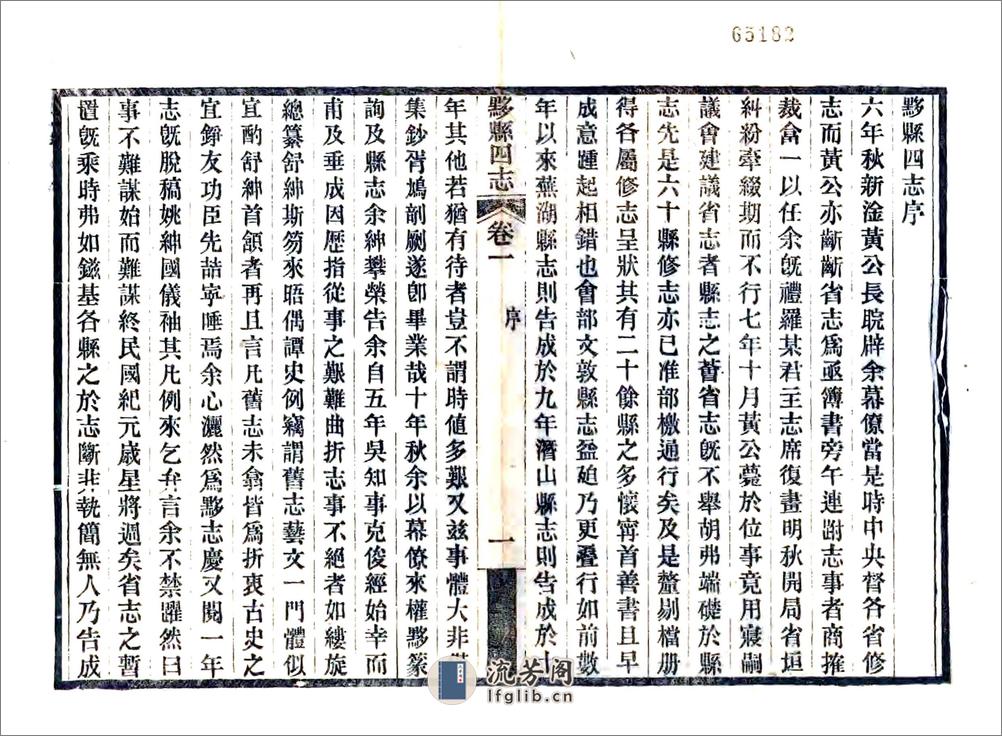 65182
黟縣四志序
六年秋新淦黃公長晥辟余幕僚當是時中央督各省修
志而黃公亦齗齗省志爲亟簿書旁午連謝志事者商搉
裁畣一以任余旣禮羅某君主志席復畫明秋開局省垣
糾紛牽綴期而不行七年十月黃公薨於位事竟用寢嗣
議會建議省志者縣志之薈省志旣不舉胡弗端礎於縣
志先是六十縣修志亦已准部檄通行矣及是釐剔檔册
得各屬修志呈狀其有二十餘縣之多懷甯首善書且早
成意踵起相錯也會部文敦縣志益廹乃更疊行如前數
年以來蕪湖縣志則告成於九年潛山縣志則告成於十
黟縣四志
卷一
序
一
年其他若猶有待者豈不謂時値多艱又兹事體大非
集鈔胥鳩剞劂遂卽畢業哉十年秋余以幕僚來權黟篆
詢及縣志余紳攀榮告余自五年吳知事克俊經始幸而
甫及垂成因歷指從事之艱難曲折志事不絕者如縷旋
總纂舒紳斯笏來晤偶譚史例竊謂舊志藝文一門體似
宜酌舒紳首頷者再且言凡舊志未翕皆爲折衷古史之
宜錚友功臣先喆寧唾焉余心灑然爲黟志慶又閱一年
志旣脫稿姚紳國儀袖其凡例來乞弁言余不禁躍然曰
事不難謀始而難謀終民國紀元歲星將週矣省志之暫
置旣乘時弗如鎡基各縣之於志斷非執簡無人乃告成
流芳閣
lfglib.cn